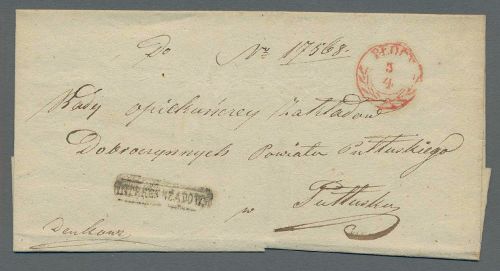 Do № 17568.
PŁOCK
5
4
Rady opiekuńczey Zakładow
Dobroczynnych Powiatu Pułtuskiego
INTERES RZĄDOWY
w Pułtusku